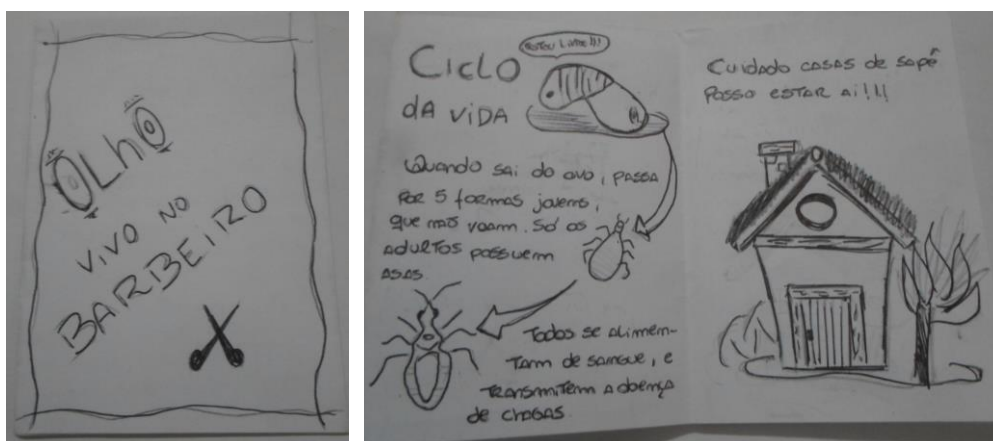 OLhO
VIVO NO
BARIBEIRO
CICLO
DA VIDA
ESTOU LIVRE!!!
Quando sai do ovo, passa
por 5 formas jovens,
que não voam. Só os
adultos possuem
asas.
Todos se alimen-
tam de sangue, e
transmitem a doença
de chagas.
Cuidado casas de sapê
posso estar aí!!!